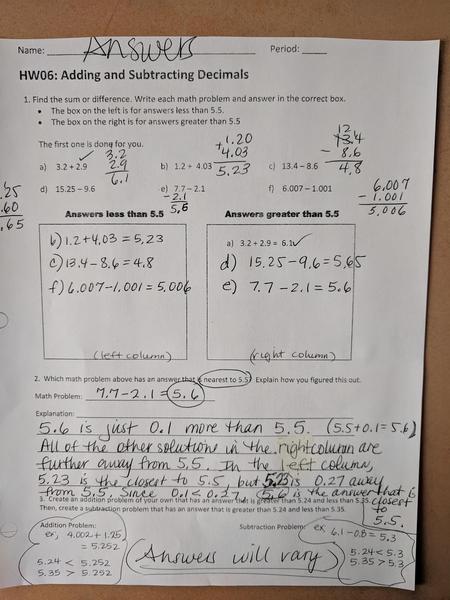 Name: Answers Period:
HW06: Adding and Subtracting Decimals
1. Find the sum or difference. Write each math problem and answer in the correct box.
• The box on the left is for answers less than 5.5.
• The box on the right is for answers greater than 5.5
The first one is done for you.
a) 3.2 + 2.9 ✓ 3.2 2.9 6.1
b) 1.2 + 4.03 1.20 +4.03 5.23
c) 13.4 – 8.6 12 13.4 - 8.6 4.8
d) 15.25 – 9.6 .25 .60 .65
e) 7.7 – 2.1 -2.1 5.6
f) 6.007 – 1.001 6.007 - 1.001 5,006
Answers less than 5.5 Answers greater than 5.5
b) 1.2+4.03 = 5.23
c) 13.4-8.6 = 4.8
f) 6.007-1.001 = 5,006
(left column)
a) 3.2 + 2.9 = 6.1 ✓
d) 15.25-9.6=5.65
e) 7.7-2.1=5.6
(right column)
2. Which math problem above has an answer that is nearest to 5.5? Explain how you figured this out.
Math Problem: 7.7-2.1=5.6
Explanation:
5.6 is just 0.1 more than 5.5. (5.5+0.1=5.6)
All of the other solutions in the right column are
further away from 5.5. In the left column,
5.23 is the closest to 5.5, but 5.23 is 0.27 away
from 5.5. Since 0.1 < 0.27, 5.6 is the answer that is
closest
to
5.5.
3. Create an addition problem of your own that has an answer that is greater than 5.24 and less than 5.35.
Then, create a subtraction problem that has an answer that is greater than 5.24 and less than 5.35.
Addition Problem:
ex, 4.002+1.25
= 5.252
5.24 < 5.252
5.35 > 5.252
(Answers will vary)
Subtraction Problem: ex, 6.1-0.8=5.3
5.24<5.3
5.35>5.3